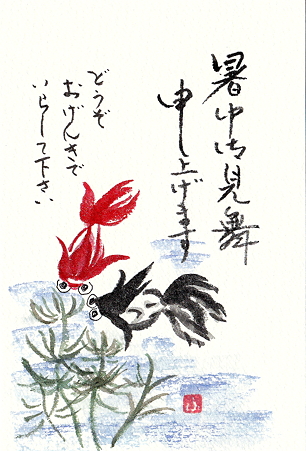 暑中御見舞
申し上げます
どうぞ
おげんきで
いらして下さい